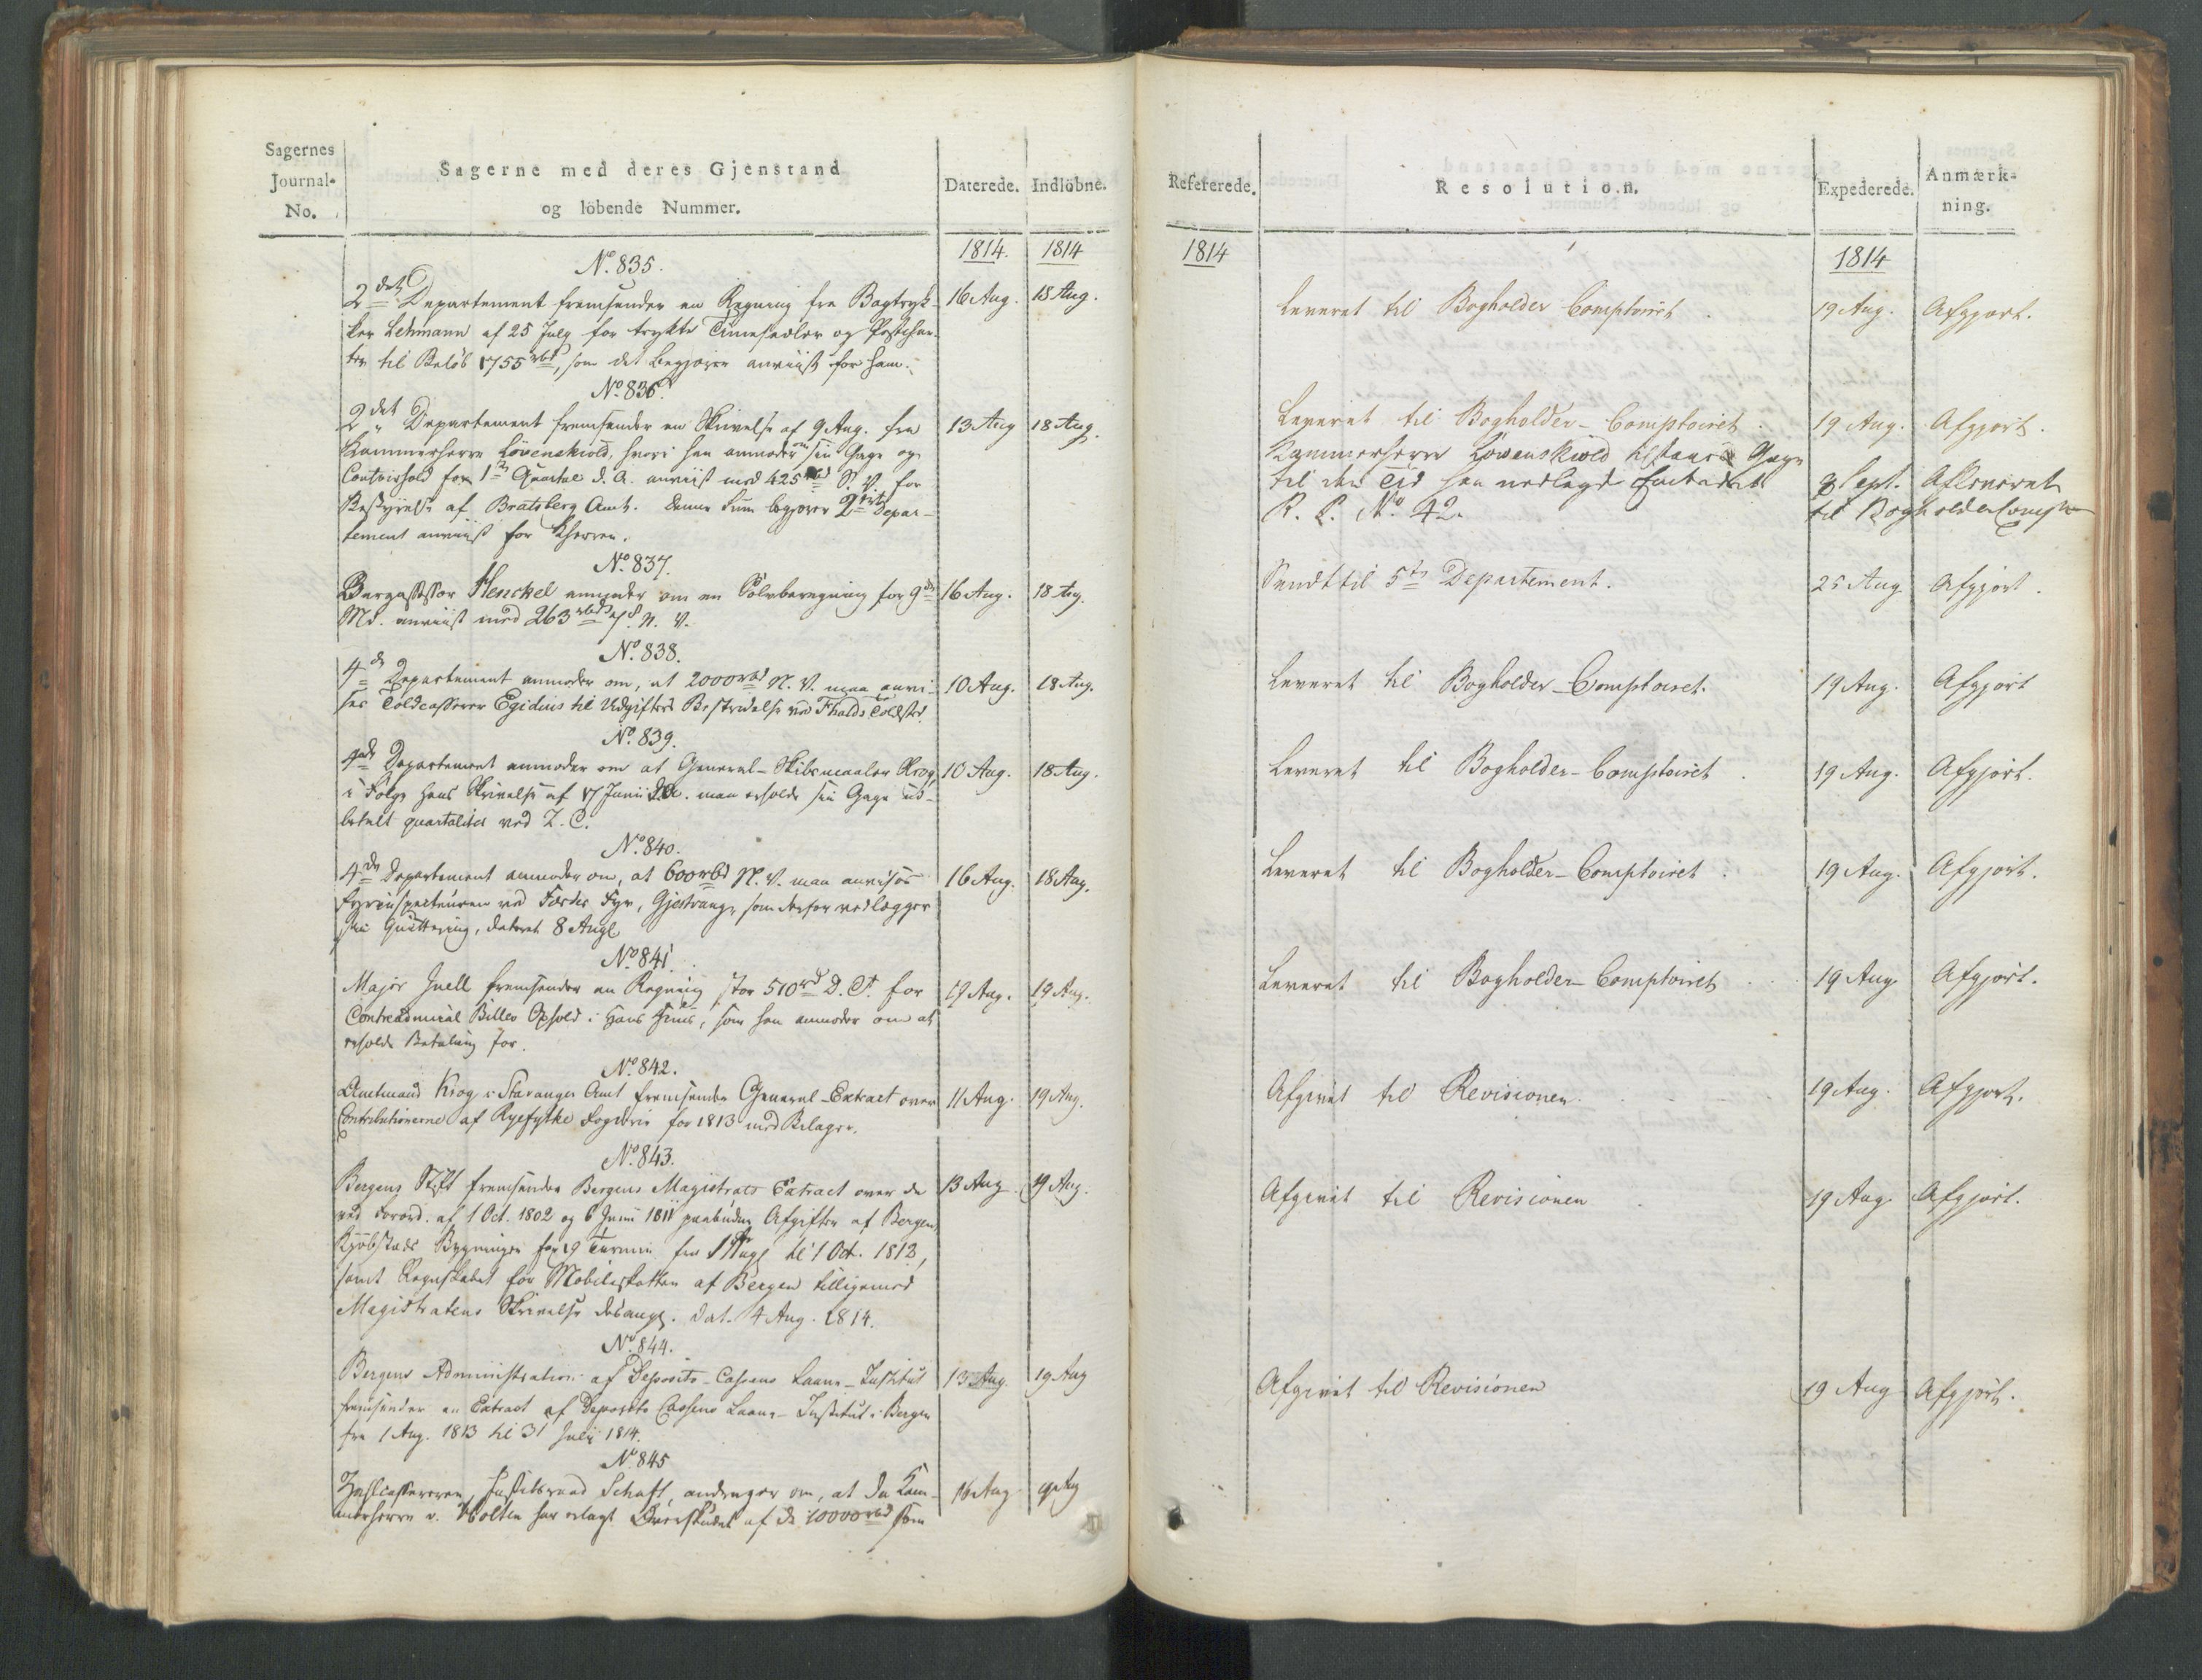 Sagernes
Journal-
No.
Sagerne med deres Gjenstand
og löbende Nummer.
Daterede.
Indlöbne.
1814.
1814
No. 835.
2det Departement fremsender en Regning fra Bogtryk-
ker Lehmann af 25 July for trykte Timesedler og Postchar-
ter til Beløb 1755 rbd, som det begjærer anviist for ham.
16 Aug.
18 Aug.
No. 836.
2det Departement fremsender en Skrivelse af 9 Aug. fra
Kammerherre Lövenskiold, hvori han anmoder om sin Gage og
Contoirhold for 1ste Quartal d. A. anviist med 425 rbd S. V. for
Bestyrelse af Bratsberg Amt. Denne Sum begjærer 2det Depar-
tement anviist for Kherren.
13 Aug
18 Aug.
No. 837.
Bergassessor Henckel anmoder om en Sölvberegning for 9de
Md. anviist med 263 rbd 78 N. V.
16 Aug.
18 Aug.
No. 838.
4de Departement anmoder om, at 2000 rbd N. V. maa anvi-
ses Toldcasserer Egidius til Udgifters Bestridelse ved Fhalds Toldsted.
10 Aug.
18 Aug.
No. 839.
4de Departement anmoder om at General-Skibsmaaler Krog,
i Følge hans Skrivelse af 17 Junii d. A. maa erholde sin Gage ud-
betalt quartaliter ved Z. C.
10 Aug.
18 Aug.
No. 840.
4de Departement anmoder om, at 600 rbd N. V. maa anvises
Fyrinspecteuren ved Færder Fyr, Gjestrang, som derfor vedlægger
sin Quittering, dateret 8 Aug.
16 Aug.
18 Aug.
No. 841.
Major Juell fremsender en Regning stor 510 rd D. C. for
Contreadmiral Billes Ophold i hans Huus, som han anmoder om at
erholde Betaling for.
19 Aug.
19 Aug.
No. 842.
Amtmand Krog i Stavanger Amt fremsender General-Extract over
Contributionerne af Ryefylke Fogderie for 1813 med Bilager.
11 Aug.
19 Aug.
No. 843.
Bergens Stift fremsender Bergens Magistrats Extract over de
ved Forord. af 1 Oct. 1802 og 6 Junii 1811 paabudne Afgifter af Bergens
Kjøbstads Bygninger for 19 Termin fra 1 Aug. til 1 Oct. 1813,
samt Regnskabet for Mobilieskatten af Bergen tilligemed
Magistratens Skrivelse desang. dat. 4 Aug. 1814.
13 Aug.
19 Aug.
No. 844.
Bergens Administration af Deposito-Cassens Laane-Institut
fremsender en Extract af Deposito Cassens Laane-Institut i Bergen
fra 1 Aug. 1813 til 31 July 1814.
13 Aug.
19 Aug
No. 845
Zahlcassereren, Justitsraad Schaft, andrager om, at da Kam-
merherre v. Holten har erlagt Overskudet af de 10000 rbd som
16 Aug
19 Aug
Refererede.
Resolution.
Expederede.
Anmærk-
ning.
1814
1814
Leveret til Bogholder Comptoiret.
19 Aug.
Afgjort.
Leveret til Bogholder-Comptoiret.
19 Aug.
Afgjort.
Kammerherre Löwenskiold tilstaaes Gage
til den Tid han nedlagde Embedet
8 Sept. Afleveret
R. P. No. 42.
til Bogholder Compt.
Sendt til 5te Departement.
25 Aug
Afgjort.
Leveret til Bogholder-Comptoiret.
19 Aug.
Afgjort
Leveret til Bogholder-Comptoiret.
19 Aug.
Afgjort.
Leveret til Bogholder-Comptoiret.
19 Aug.
Afgjort.
Leveret til Bogholder-Comptoiret
19 Aug.
Afgjort.
Afgivet til Revisionen.
19 Aug.
Afgjort.
Afgivet til Revisionen.
19 Aug.
Afgjort.
Afgivet til Revisionen
19 Aug
Afgjort.